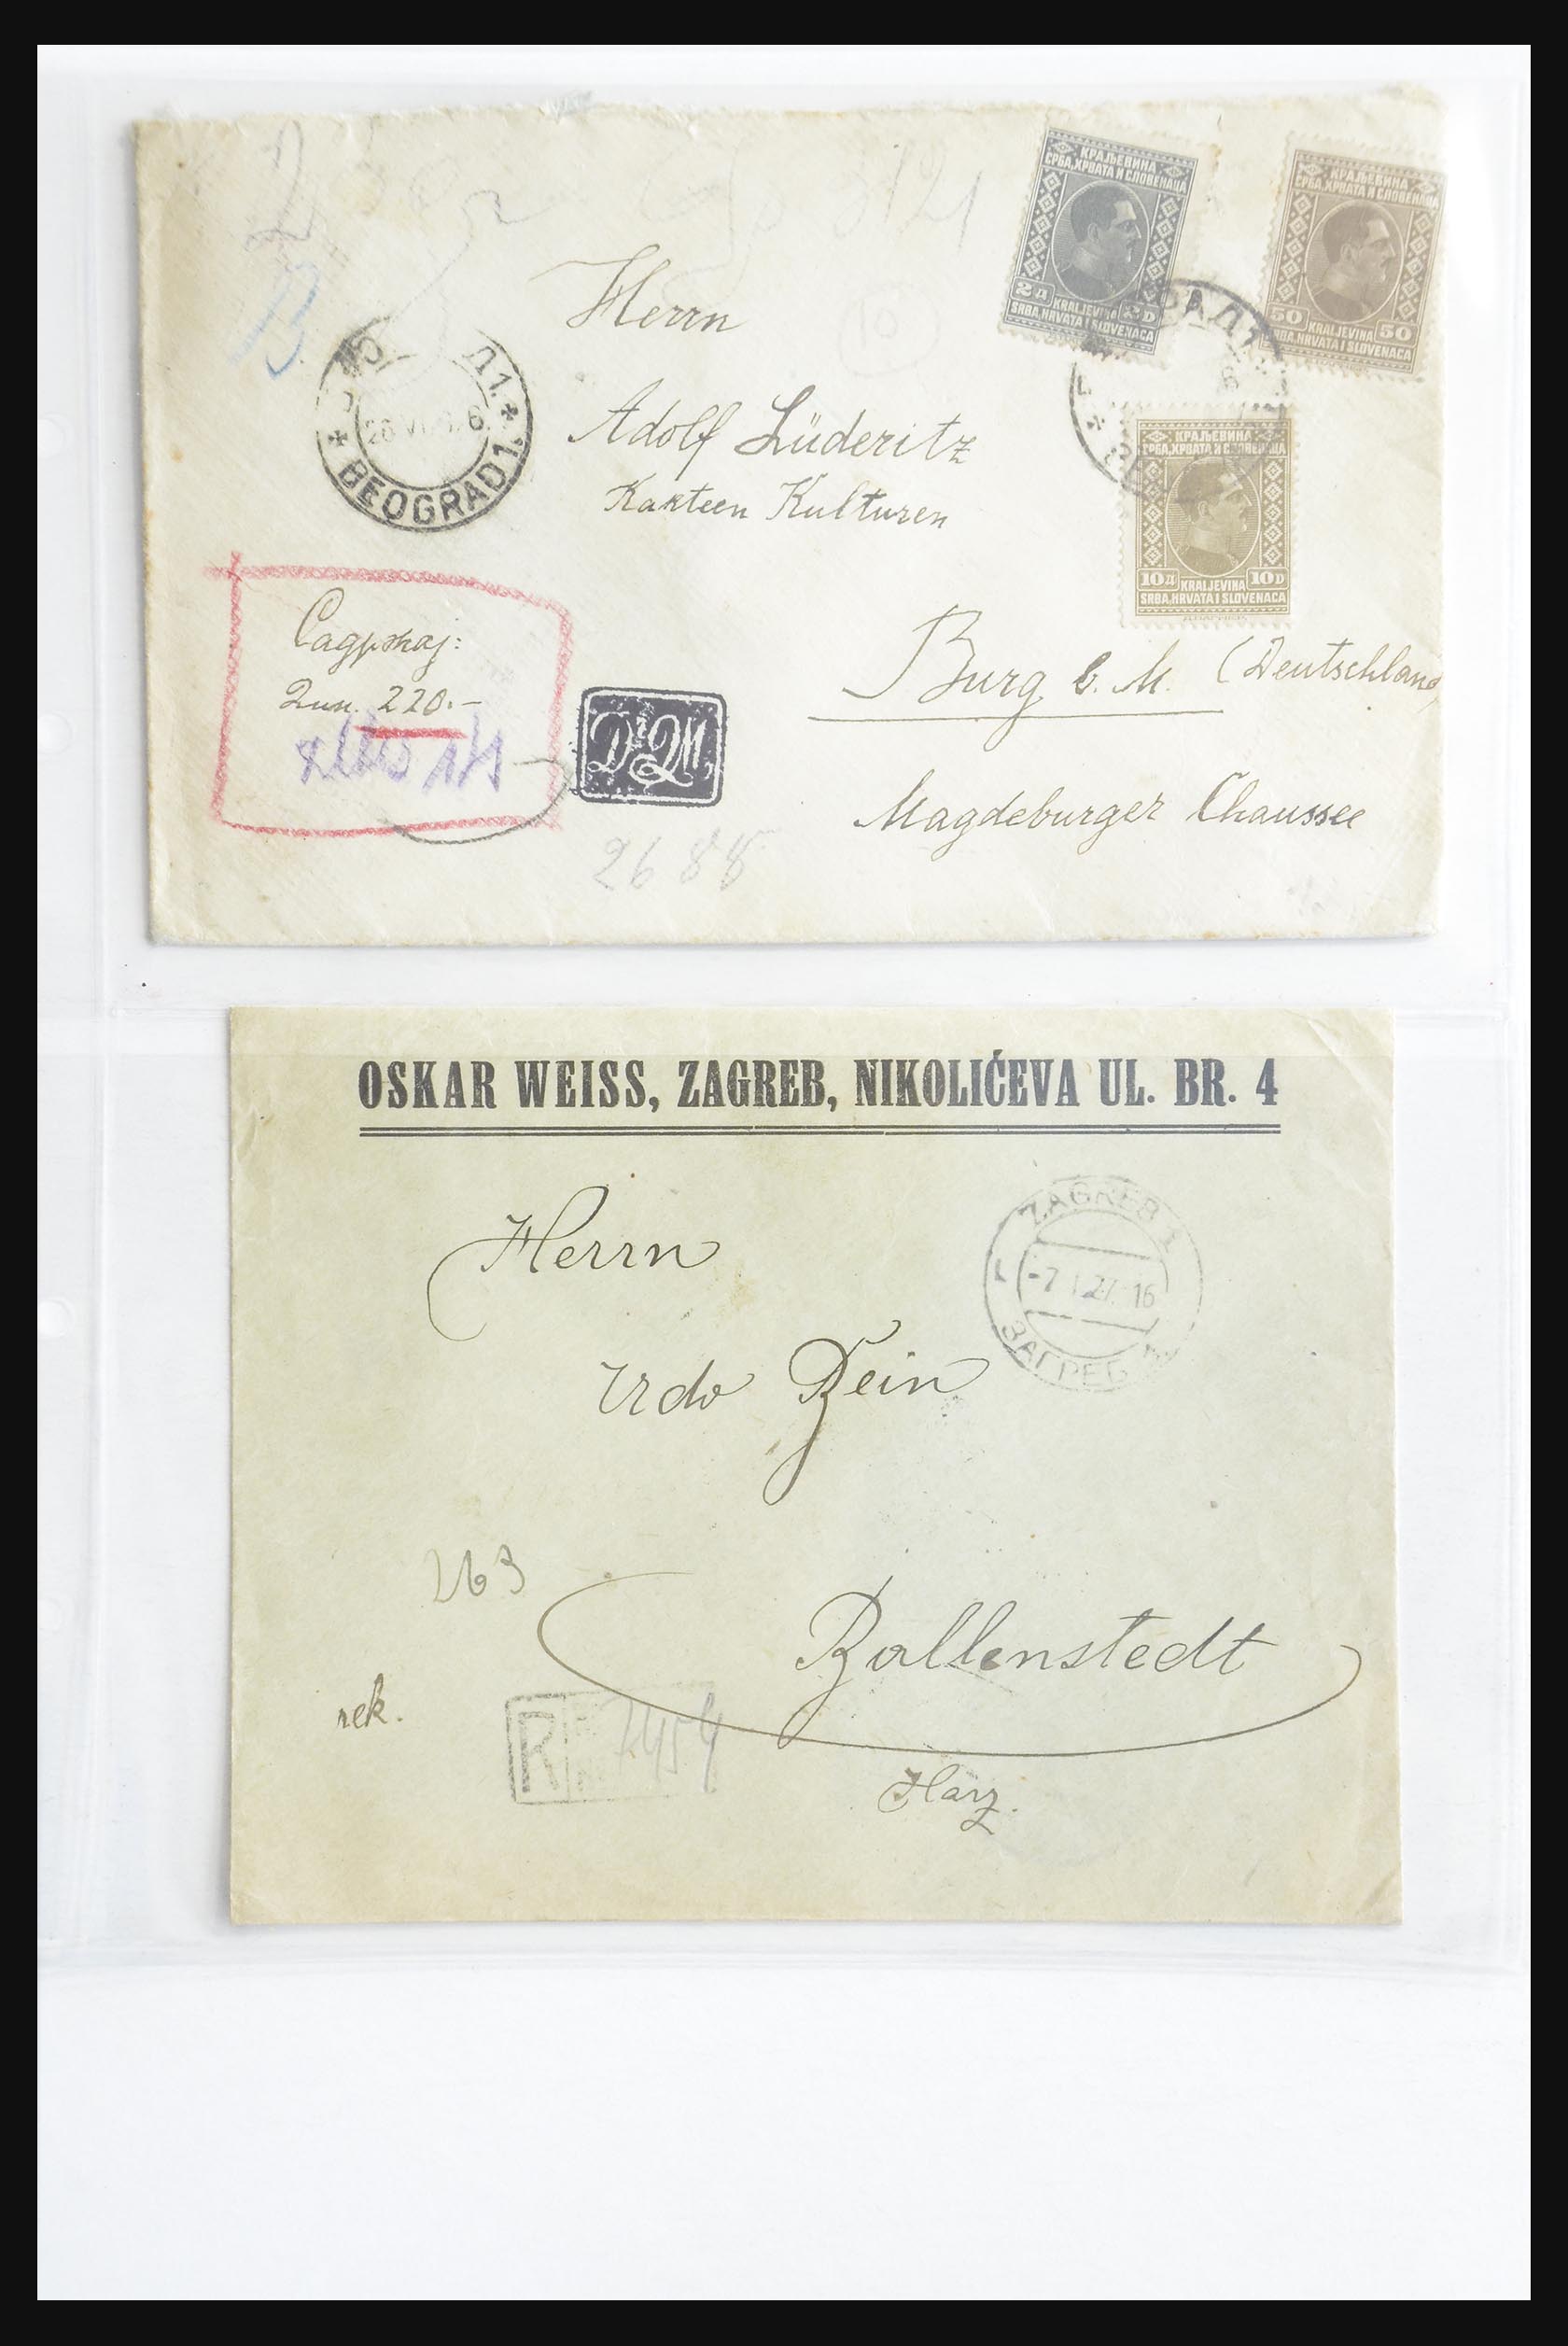 КРАЉЕВИНА
СРБА, ХРВАТА И СЛОВЕНАЦА
2Д KRALJEVINA 2D
SRBA, HRVATA I SLOVENACA
КРАЉЕВИНА
СРБА, ХРВАТА И СЛОВЕНАЦА
50 KRALJEVINA 50
SRBA, HRVATA I SLOVENACA
Herrn
10
BEOGRAD 1.
Adolf Lüderitz
Kakteen Kulturen
КРАЉЕВИНА
СРБА, ХРВАТА И СЛОВЕНАЦА
10Д KRALJEVINA 10D
SRBA, HRVATA I SLOVENACA
Садржај:
Дин. 220.-
Burg b. M. (Deutschland)
Magdeburger Chaussee
2688
OSKAR WEISS, ZAGREB, NIKOLIĆEVA UL. BR. 4
Herrn
ZAGREB 1
-7 I 27. 16
ЗАГРЕБ
Udo Bein
263
Ballenstedt
rek.
R
Harz.